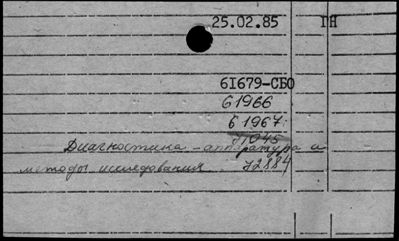 25.02.85 ГН
61679-СБО
61966
61967
71045
Диагностика - аппаратура и
методы исследования. 72884